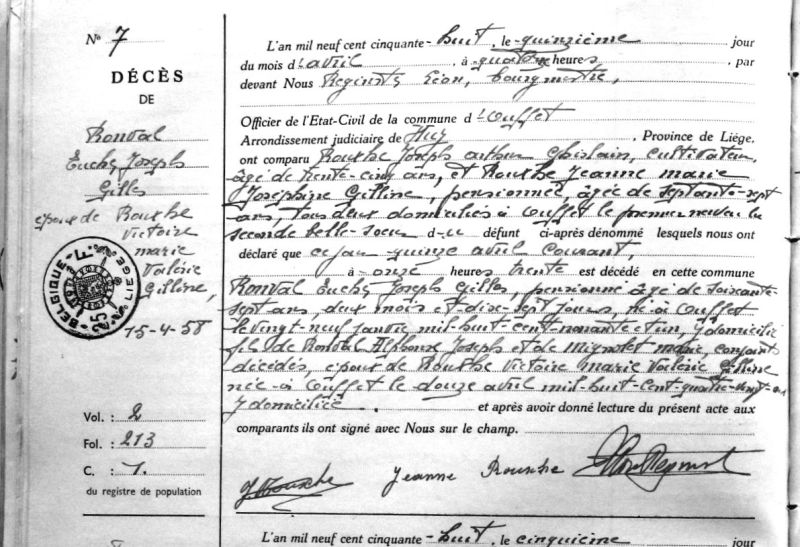 N° 7
DÉCÈS
DE
Ronval
Euchy Joseph
Gilles
époux de Rouxhe
Victoire
marie
Valérie
Gilline,
BELGIQUE
25 F
Pce DE LIEGE
15-4-58
Vol. : 2
Fol. : 213
C. : 1.
du registre de population
L'an mil neuf cent cinquante-huit, le quinzième jour
du mois d'avril, à quatre heures, par
devant Nous Reginster Léon, bourgmestre,
Officier de l'Etat-Civil de la commune d'Ouffet
Arrondissement judiciaire de Huy, Province de Liége,
ont comparu Rouxhe Joseph arthur Ghislain, cultivateur,
âgé de trente-cinq ans, et Rouxhe Jeanne marie
Joséphine Gilline, pensionnée, âgée de septante-sept
ans, tous deux domiciliés à Ouffet le premier neveu la
seconde belle-soeur d-u défunt ci-après dénommé lesquels nous ont
déclaré que ce jour quinze avril courant,
à onze heures trente est décédé en cette commune
Ronval Euchy Joseph Gilles, pensionné âgé de soixante-
sept ans, deux mois et dix-sept jours, né à Ouffet
le vingt neuf janvier mil-huit-cent-nonante et un, y domicilié
fils de Ronval Alphonse Joseph et de Mignolet marie, conjoints
décédés, époux de Rouxhe Victoire Marie Valérie Gilline
née à Ouffet le douze avril mil-huit-cent-quatre-vingt-
y domiciliée. et après avoir donné lecture du présent acte aux
comparants ils ont signé avec Nous sur le champ.
J Rouxhe Jeanne Rouxhe
L'an mil neuf cent cinquante-huit, le cinquième jour